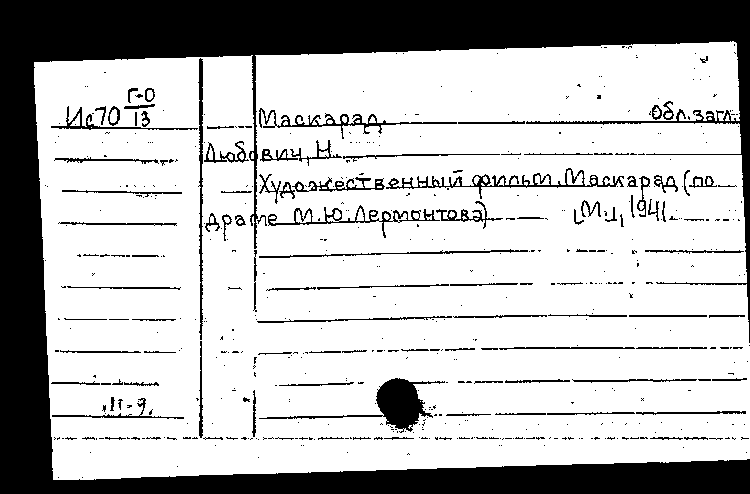 Г-0
Ис70 13 Маскарад. Обл. загл.
Любович, Н.
Художественный фильм. Маскарад (по
драме М.Ю. Лермонтова) 1941.